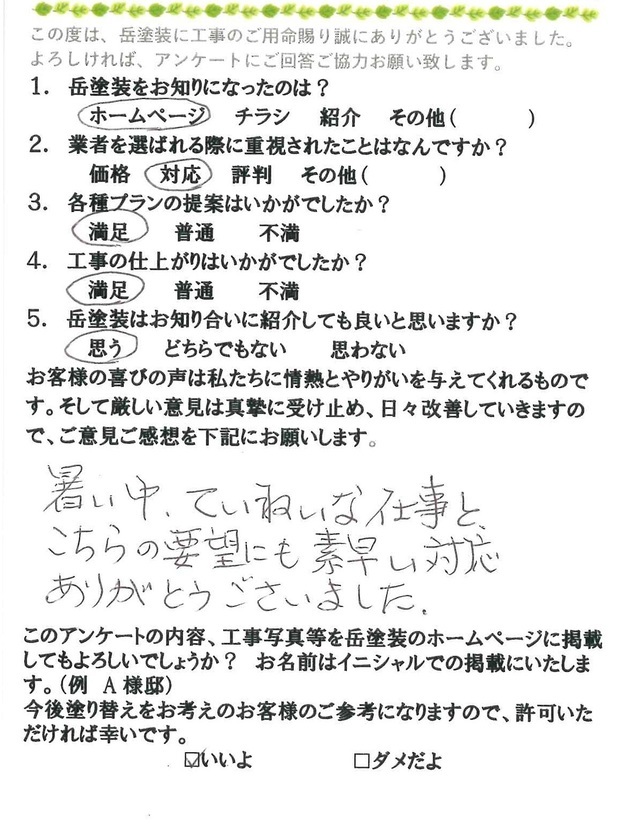 この度は、岳塗装に工事のご用命賜り誠にありがとうございました。
よろしければ、アンケートにご回答ご協力お願い致します。
1. 岳塗装をお知りになったのは？
ホームページ チラシ 紹介 その他( )
2. 業者を選ばれる際に重視されたことはなんですか？
価格 対応 評判 その他( )
3. 各種プランの提案はいかがでしたか？
満足 普通 不満
4. 工事の仕上がりはいかがでしたか？
満足 普通 不満
5. 岳塗装はお知り合いに紹介しても良いと思いますか？
思う どちらでもない 思わない
お客様の喜びの声は私たちに情熱とやりがいを与えてくれるもので
す。そして厳しい意見は真摯に受け止め、日々改善していきますの
で、ご意見ご感想を下記にお願いします。
暑い中、ていねいな仕事と、
こちらの要望にも素早い対応
ありがとうございました。
このアンケートの内容、工事写真等を岳塗装のホームページに掲載
してもよろしいでしょうか？ お名前はイニシャルでの掲載にいたしま
す。(例 A 様邸)
今後塗り替えをお考えのお客様のご参考になりますので、許可いた
だければ幸いです。
☑いいよ □ダメだよ